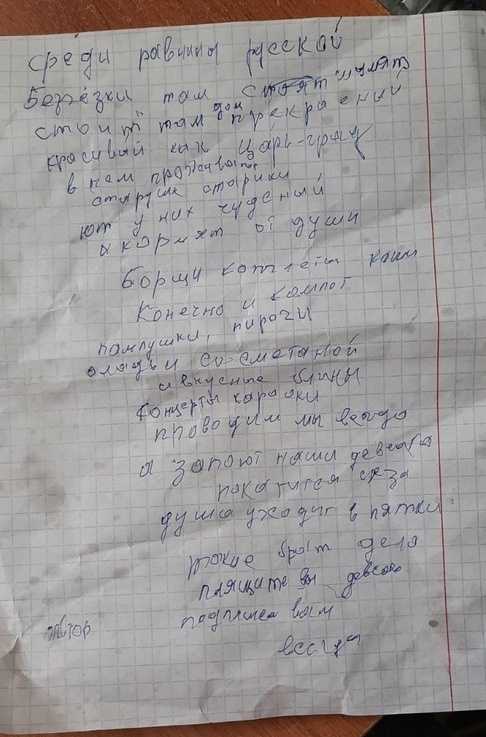 Среди равнины русской
Безрезки там стоят шумят
стоит там дом прекрасний
красивый как Царь-град
в нем проживают
старушк старики
ют у них чудесный
а кормят от души
Борщи котлеты каши
Конечно и компот
пампушки, пироги
оладьи со-сметаной
а вкусные блины
Концерты караоки
проводим мы всегда
а запоют наши девчата
покатится
душа уходит в пятки
такие брат дела
плящите вы девчата
подпляшем вам
всегда
Автор